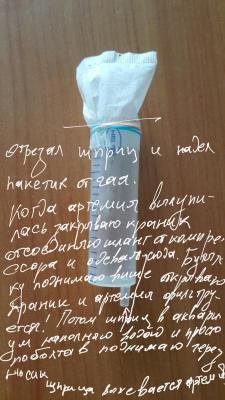 Отрезал шприц и надел
пакетик от чая.
Когда артемия вылупи-
лась закрываю краник
отсоединяю шланг от компре-
ссора и одеваю сюда. Бутыл-
ку поднимаю выше открываю
краник и артемия фильтру-
ется! Потом шприц в аквари-
ум наполняю водой и просто
поболтав поднимаю через
носик
шприца выливается артемия